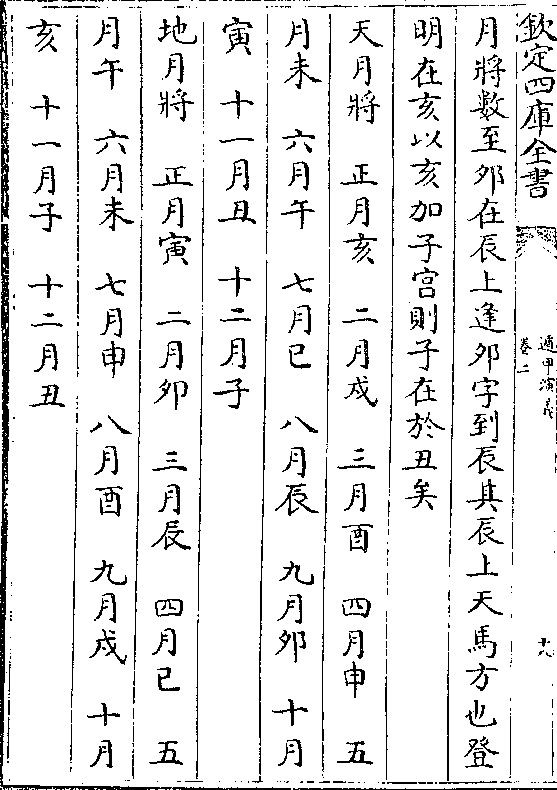 欽定四庫全書
遁甲演義
卷二
十九
月將數至夘在辰上逢夘字到辰其辰上天馬方也登
明在亥以亥加子宫則子在於丑矣
天月將　正月亥　二月戍　三月酉　四月申　五
月未　六月午　七月巳　八月辰　九月夘　十月
寅　十一月丑　十二月子
地月將　正月寅　二月卯　三月辰　四月巳　五
月午　六月未　七月申　八月酉　九月戍　十月
亥　十一月子　十二月丑